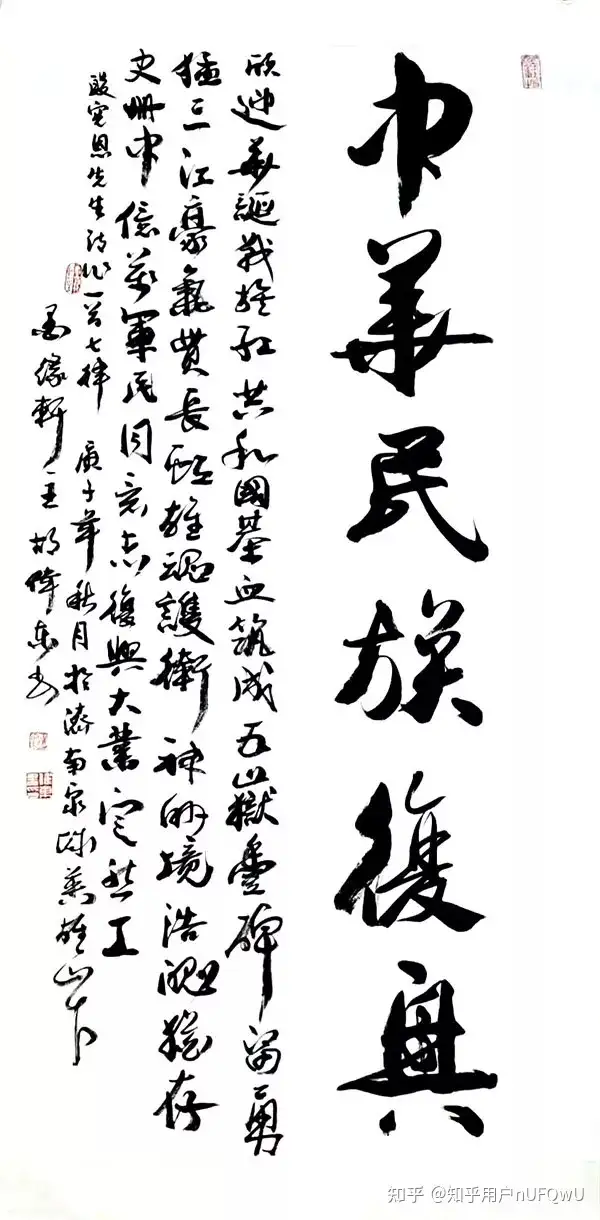 中華民族復興
欣迎華誕戰旗紅共和國基血築成五嶽豐碑留勇
猛三江豪氣貫長虹雄魂護衛神州境浩魄猶存
史冊中億萬軍民同意志復興大業定然工
殷恩先生詩作一首七律 庚子年秋月於濟南泉城英雄山下
墨緣軒主胡偉東書
知乎 @知乎用户nUFQwU